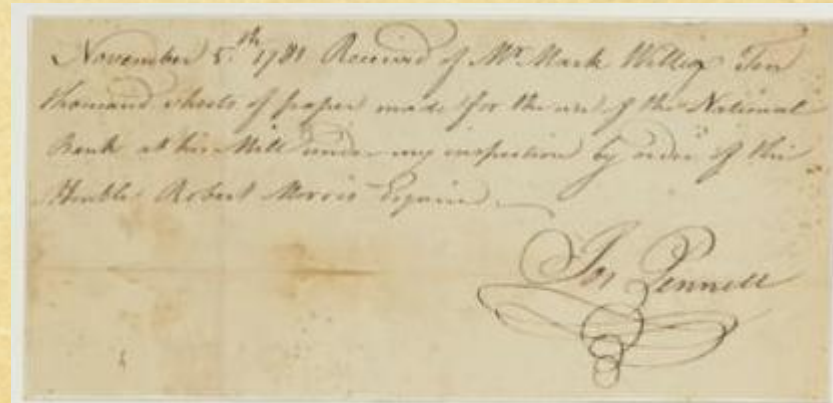 November 5.th 1781 Received of Mr. Mark Willcox Ten
thousand sheets of paper made for the use of the National
Bank at his Mill under my inspection by order of the
Honble. Robert Morris Esquire.
Jos Pennell